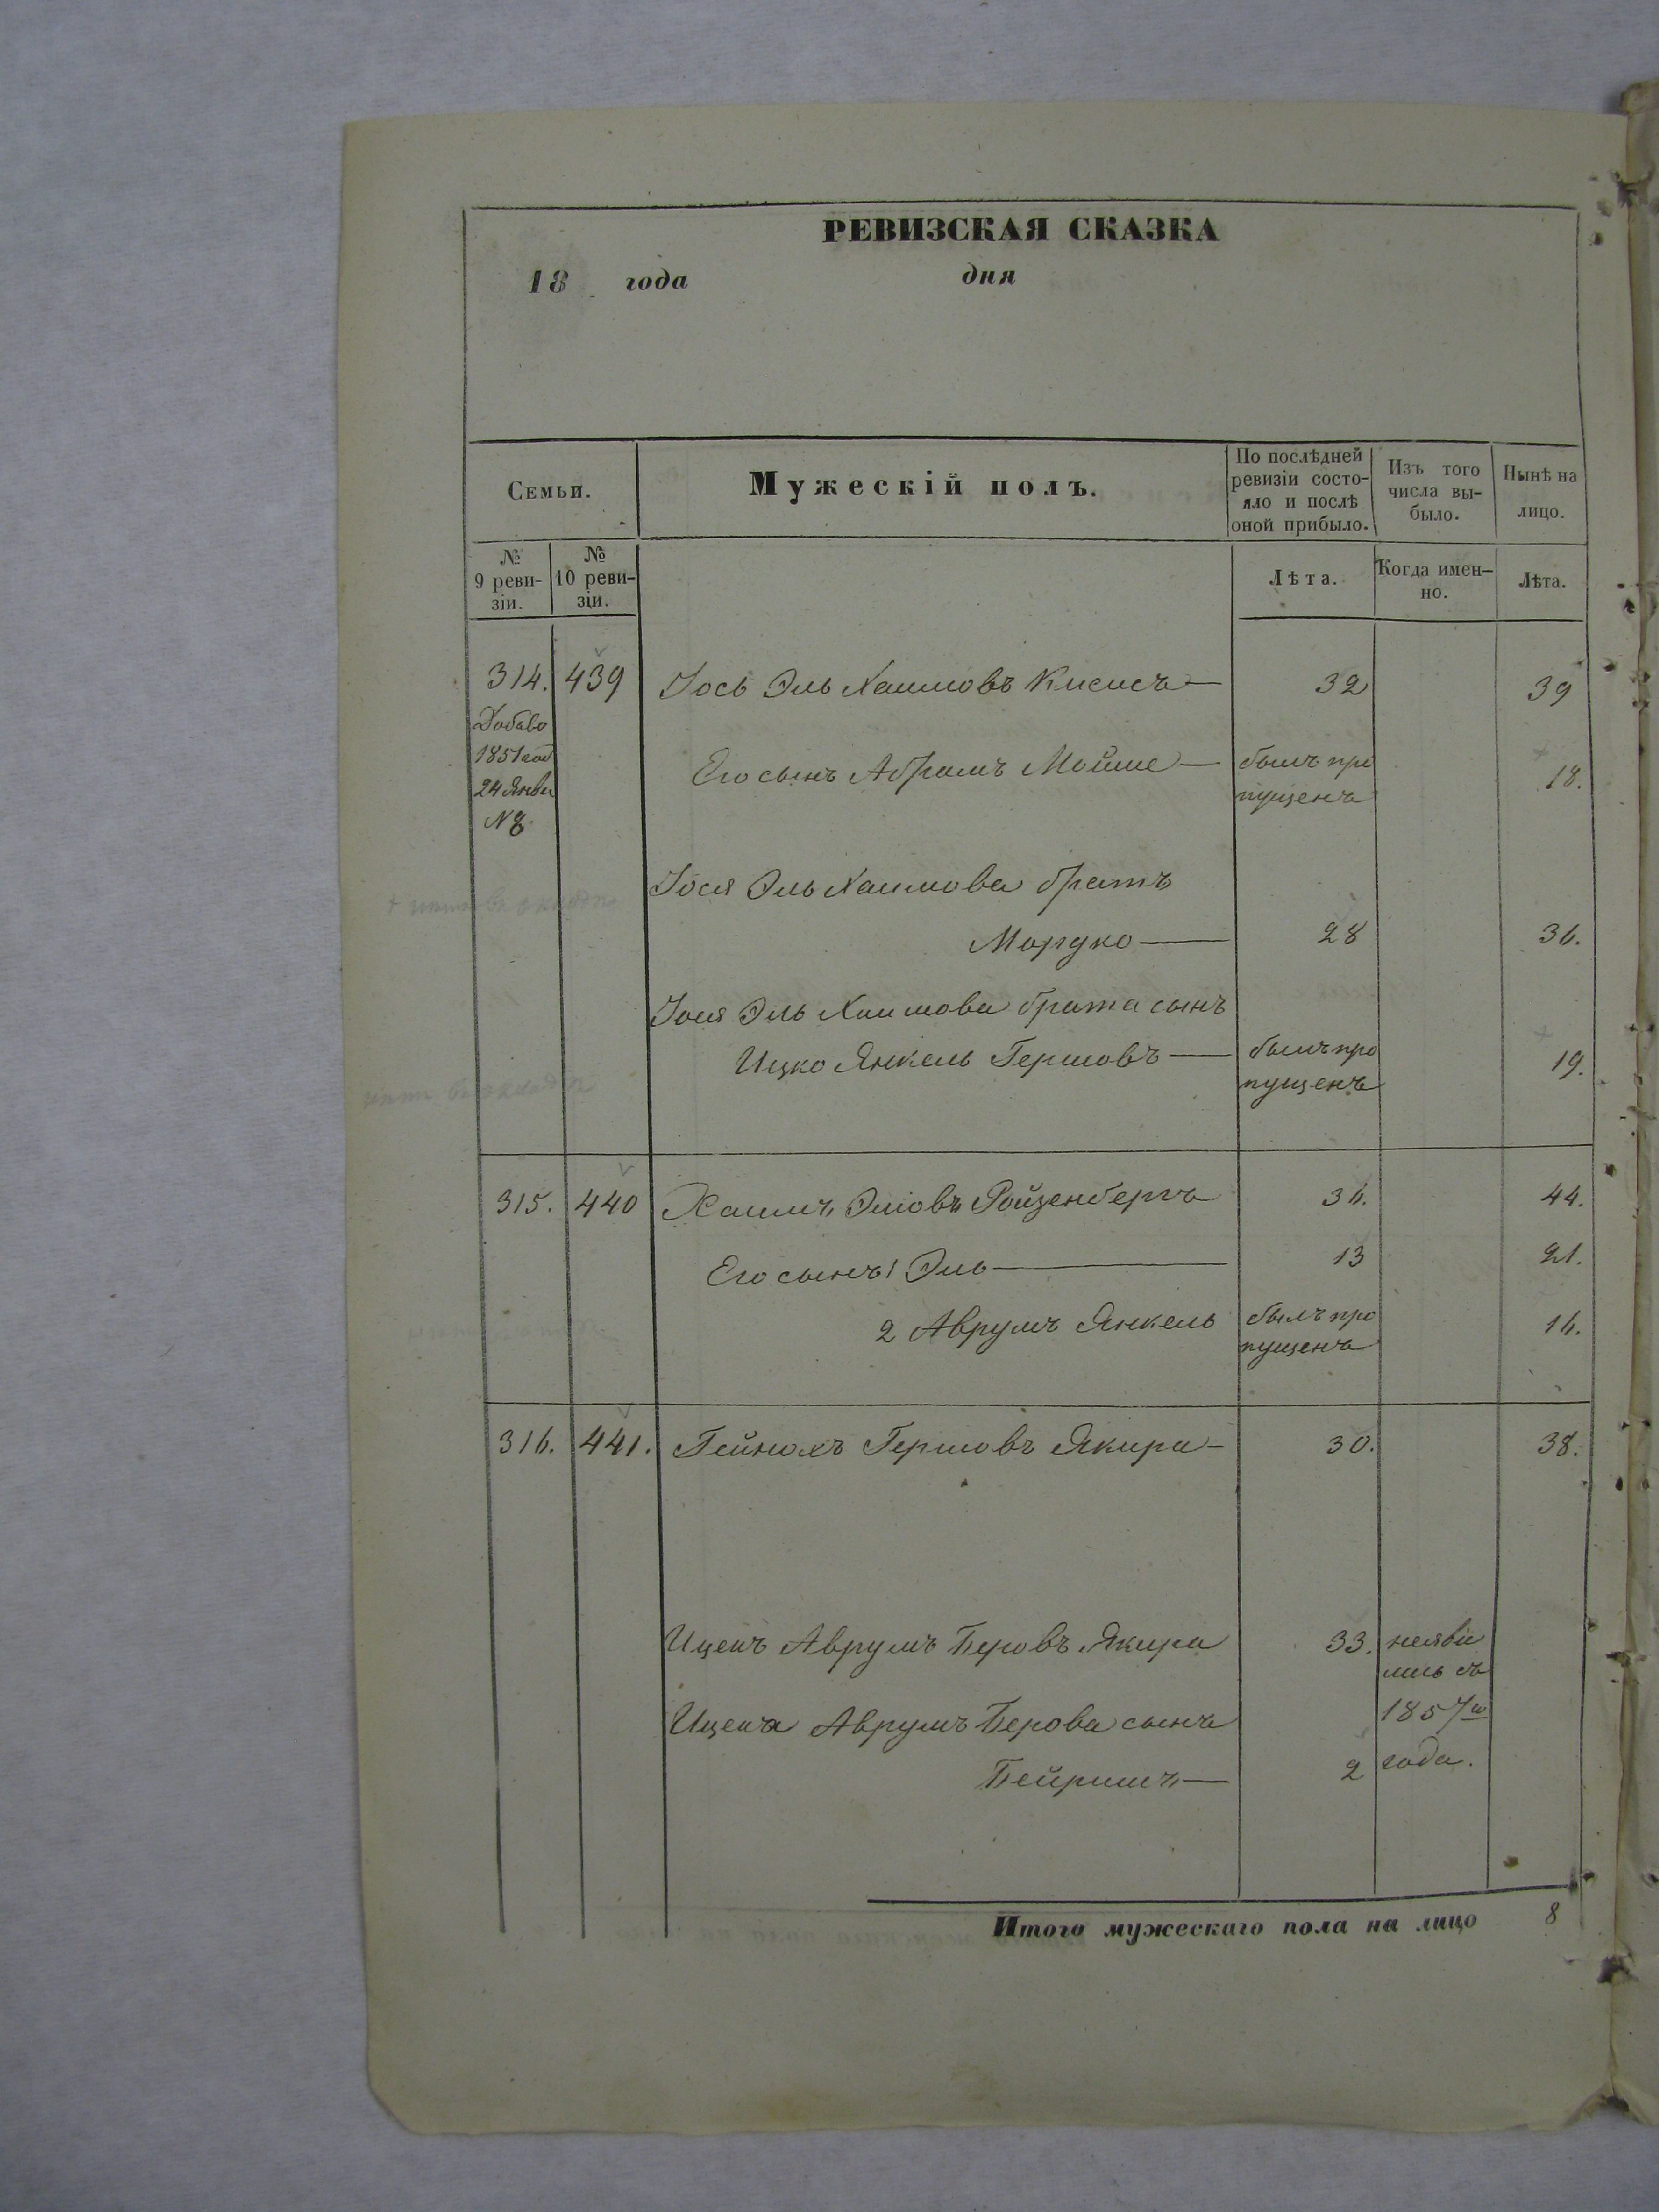 РЕВИЗСКАЯ СКАЗКА
18 года дня
Семьи.
Мужескій полъ.
По послѣдней ревизіи состо-
яло и послѣ оной прибыло.
Изъ того числа вы-
было.
Нынѣ на лицо.
№ 9 реви-
зіи.
№ 10 реви-
зіи.
Лѣта.
Когда имен-
но.
Лѣта.
314. 439 Іось Эль Хаимовъ Кисисъ 32 39
Добаво
1851 год
24 Янва
N 8.
Его сынъ Абрамъ Мойше былъ про 18.
пущенъ
Іося Эль Хаимова братъ
Мордко 28 36.
Іося Эль Хаимова брата сынъ
Ицко Янкель Гершовъ былъ про 19.
пущенъ
315. 440 Хаимъ Эліовъ Ройзенбергъ 36. 44.
Его сынъ 1 Эль 13 21.
2 Аврумъ Янкель былъ про 16.
пущенъ
316. 441. Гейнохъ Гершовъ Якира 30. 38.
Ицекъ Аврумъ Беровъ Якира 33. неяви
лись съ
Ицека Аврумъ Берова сынъ 1857го
Бейришъ 2 года.
Итого мужескаго пола на лицо 8